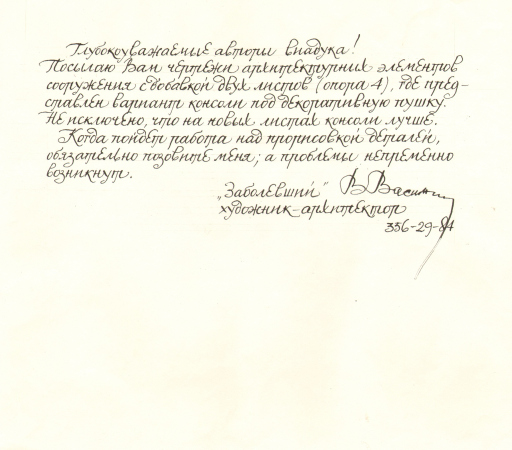 Глубокоуважаемые авторы виадука!
Посылаю Вам чертежи архитектурных элементов
сооружения с добавкой двух листов (опора 4), где пред-
ставлен вариант консоли под декоративную пушку.
Не исключено, что на новых листах консоли лучше.
Когда пойдет работа над прорисовкой деталей,
обязательно позовите меня; а проблемы непременно
возникнут.
„Заболевший" В. Васильк
художник-архитектор
356-29-84